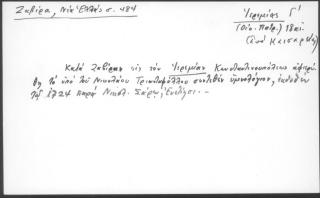 Ζαβίρα, Νέα Ἑλλάς σ. 484
Ἱερεμίας Γ΄
(Οἰκ. Πατρ.) 18 αἰ.
(ἀπό Καισαρείας)
Κατά Ζαβίραν εἰς τόν Ἱερεμίαν Κωνσταντινουπόλεως ἀφιερώ
θη τό ὑπό τοῦ Νικολάου Τριανταφύλλου συντεθέν ὑμνολόγιον, ἐκδοθέν
τῷ 1724 παρά Νικολ. Σάρῳ, Ἐνετίησι. —